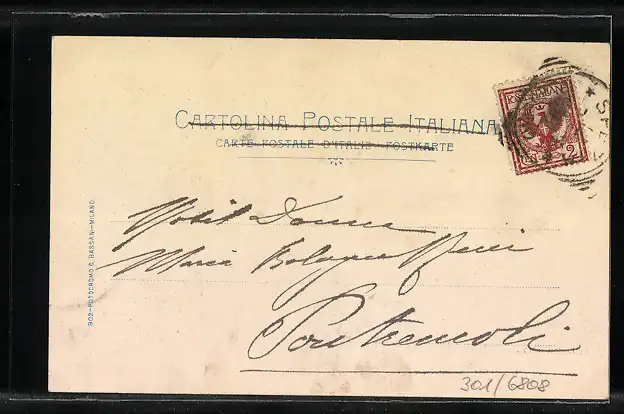 CARTOLINA POSTALE ITALIANA
CARTE POSTALE D'ITALIE - POSTKARTE
POSTE ITALIANE
CENT. 2
902 - ROTOCROMO C. BASSANI - MILANO
Nobil Donna
Maria Bologna
Pontremoli
301/6808